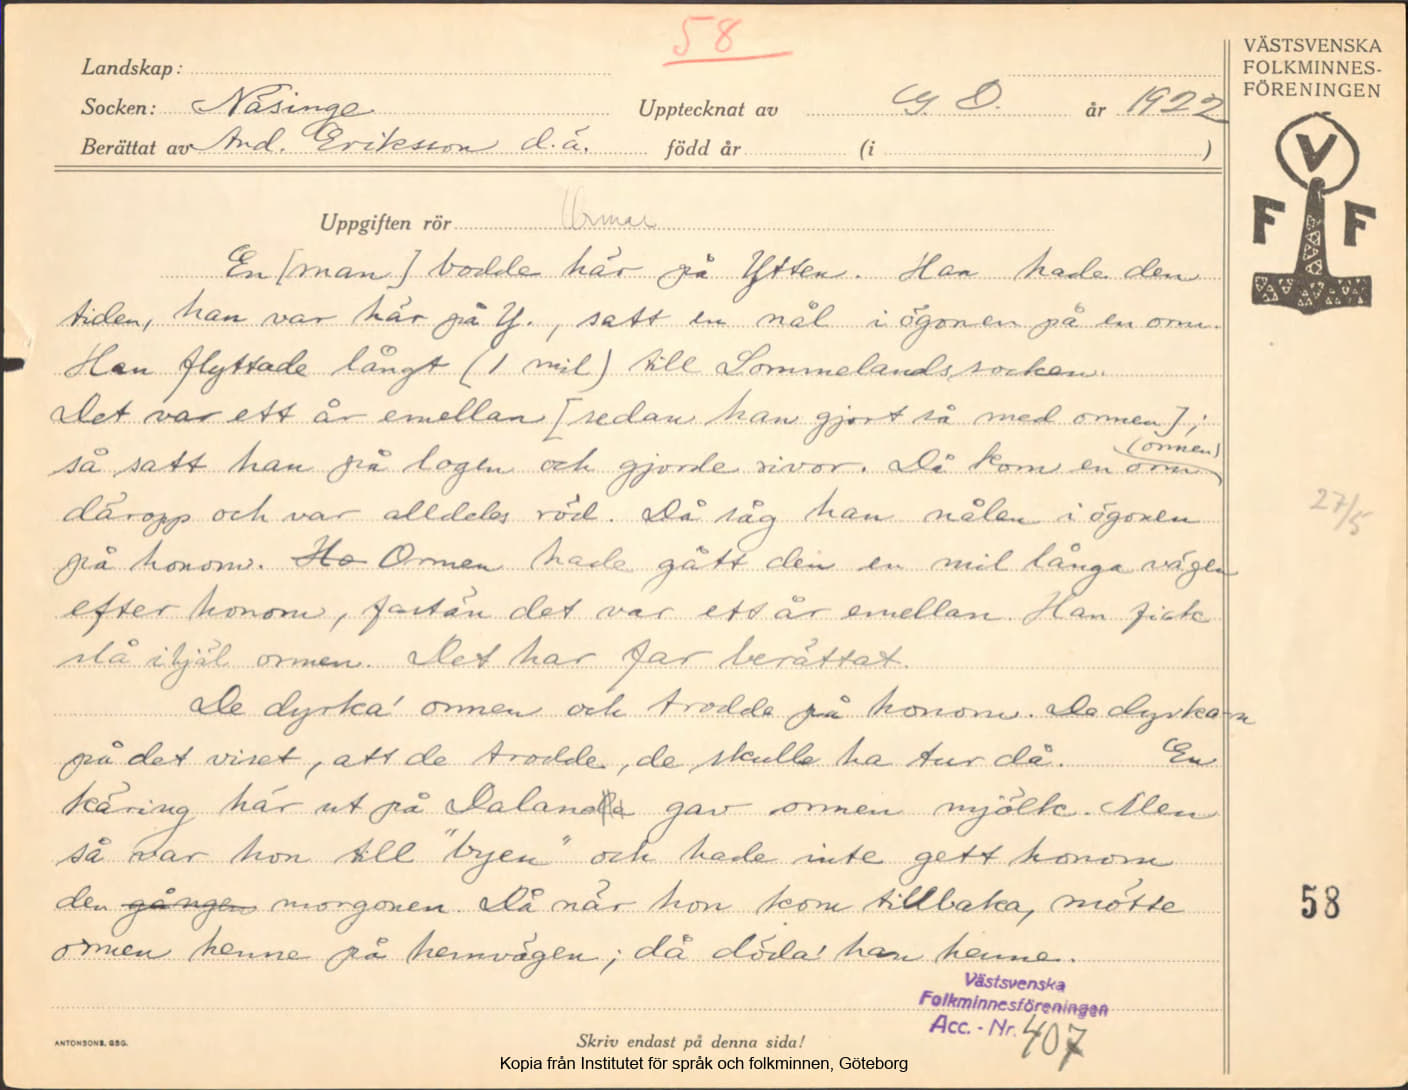 58
VÄSTSVENSKA
FOLKMINNES-
FÖRENINGEN
V
F F
Landskap:
Socken: Näsinge Upptecknat av G. D. år 1922
Berättat av And. Eriksson d.ä. född år (i )
Uppgiften rör Ormar
En [man] bodde här på Ytten. Han hade den
tiden, han var här på Y., satt en nål i ögonen på en orm.
Han flyttade långt (1 mil) till Lommelands socken.
Det var ett år emellan [sedan han gjort så med ormen];
(ormen)
så satt han på logen och gjorde rivor. Då kom en orm
däropp och var alldeles röd. Då såg han nålen i ögonen
på honom. Ha Ormen hade gått den en mil långa vägen
efter honom, fastän det var ett år emellan. Han fick
slå ihjäl ormen. Det har far berättat.
De dyrka' ormen och trodde på honom. De dyrka-n
på det viset, att de trodde, de skulle ha tur då. En
käring här ut på Daland gav ormen mjölk. Men
så var hon till "byen" och hade inte gett honom
den gången morgonen. Då när hon kom tillbaka, mötte
ormen henne på hemvägen; då döda' han henne.
27/5
58
Västsvenska
Folkminnesföreningen
Acc. - Nr. 407
ANTONSONS, GBG.
Skriv endast på denna sida!
Kopia från Institutet för språk och folkminnen, Göteborg